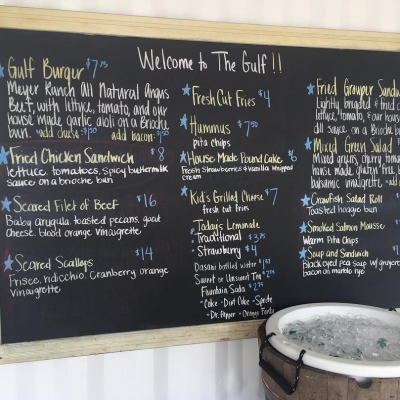 Welcome to The Gulf!!
Gulf Burger $7.75
Meyer Ranch All Natural Angus
Beef, with lettuce, tomato, and our
house made garlic aioli on a Brioche
bun. *add cheese
add bacon
Fried Chicken Sandwich $8
lettuce, tomatoes, spicy buttermilk
sauce on a brioche bun
Seared Filet of Beef $16
Baby arugula, toasted pecans, goat
cheese, blood orange vinaigrette
Seared Scallops $14
Frisee, ridicchio, cranberry orange
vinaigrette
Fresh Cut Fries $4
Hummus $7.50
pita chips
House Made Pound Cake $6
Fresh Strawberries & Vanilla Whipped
cream
Kid's Grilled Cheese $7
fresh cut fries
Today's Lemonade
Traditional
Strawberry $4
Dasani bottled water
Sweet or Unsweet Tea
Fountain Soda
- Coke - Diet Coke - Sprite
- Dr. Pepper - Orange Fanta
Fried Grouper Sandw
Lightly breaded & fried
lettuce, tomato, & our house
dill sauce on a Brioche
Mixed Green Salad
Mixed greens, cherry tomato
house made gluten free
balsamic vinaigrette. *add
Crawfish Salad Roll
Toasted hoagie bun
Smoked Salmon Mousse
Warm Pita Chips
Soup and Sandwich
Black eyed pea soup w/
bacon on marble rye